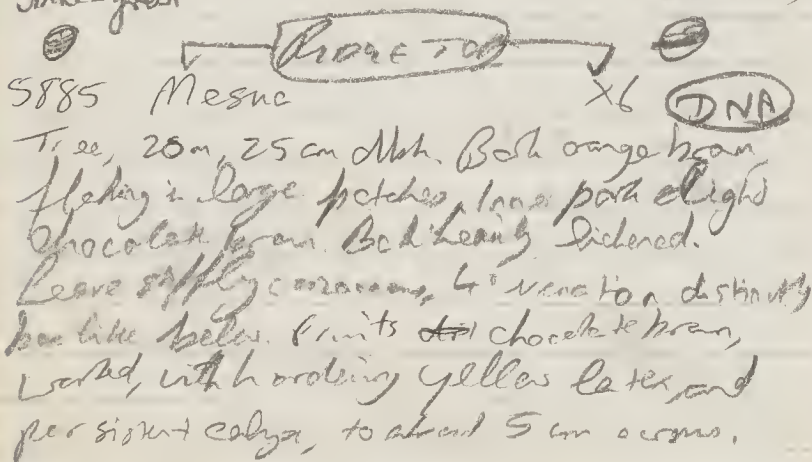 5885 Mesua x6 DNA
Tree, 20m, 25 cm dbh. Bark orange brown,
flaking in large patches, inner bark light
chocolate brown. Bark heavily lichened.
Leaves coriaceous, 4° venation distinctly
below. Fruits chocolate brown,
with yellow latex, and
persistent calyx, to about 5 cm across.